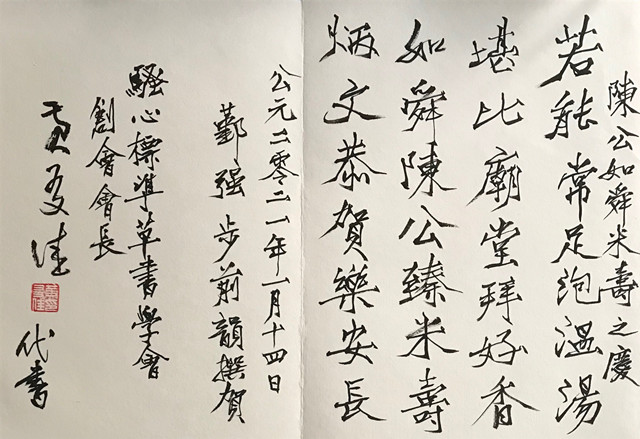 陳公如舜米壽之慶
若能常足泡溫湯
堪比廟堂拜好香
如舜陳公臻米壽
炳文恭賀樂安長
公元二零二一年一月十四日
鄞强步前韻撰賀
騷心標準草書學會
創會會長
代書